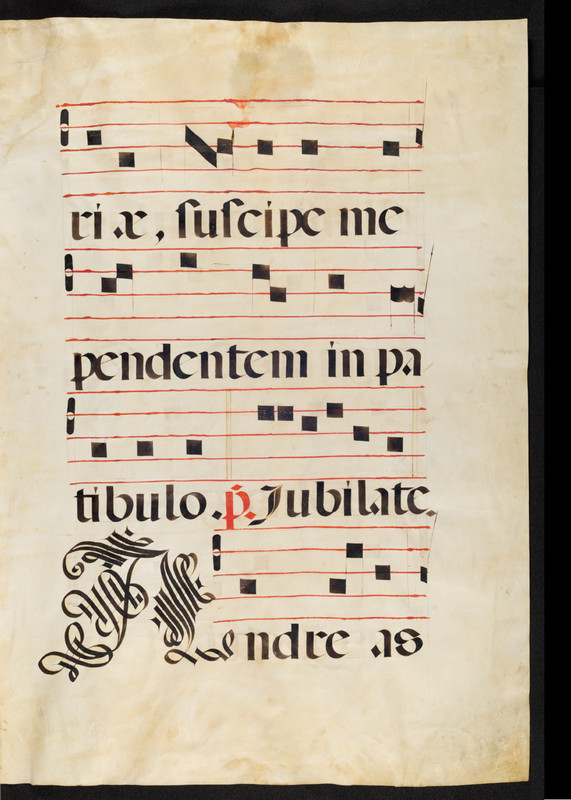 ri æ, ſuſcipe me
pendentem in pa
tibulo. p̄. Jubilate.
Andre as